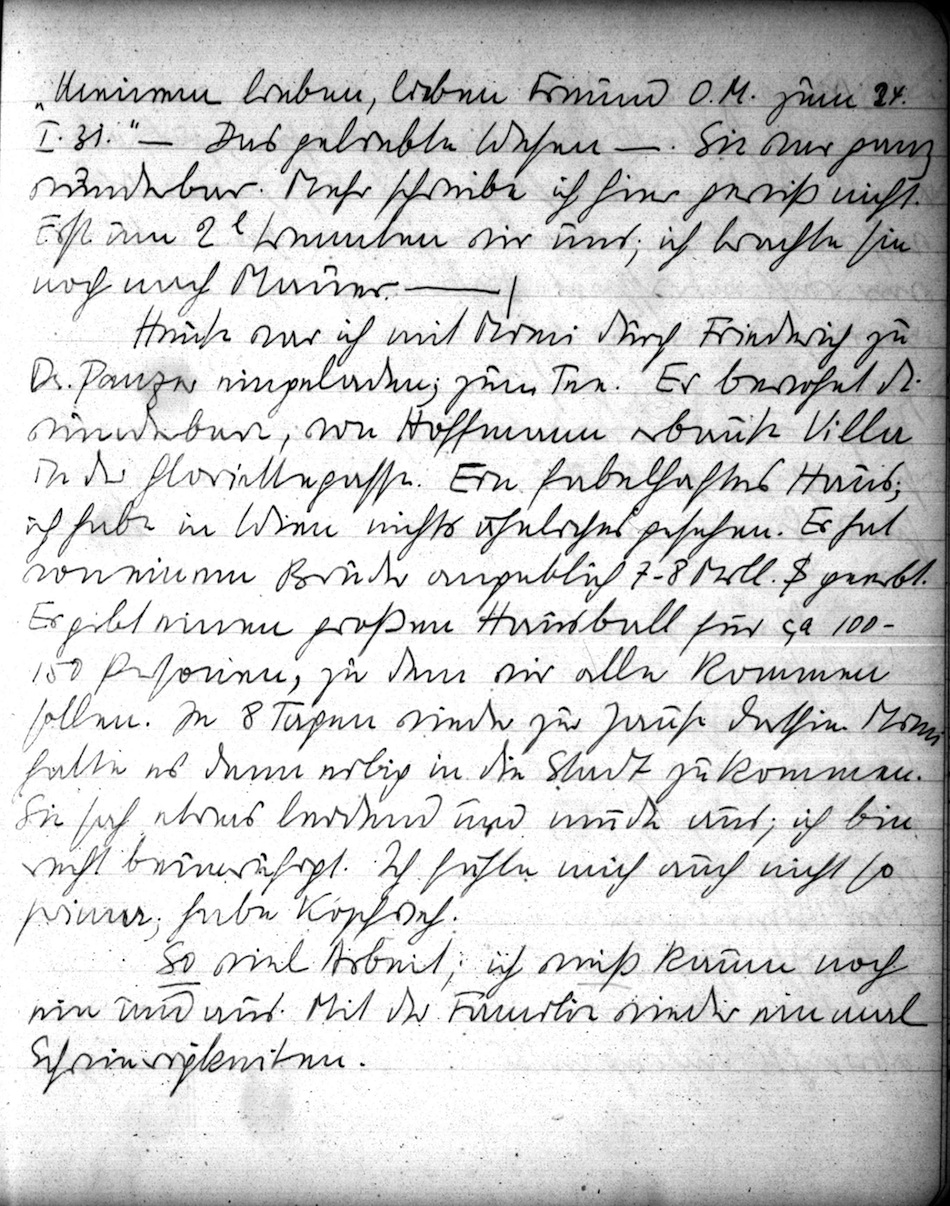 „Meinem lieben, lieben Freund O.M. zum 24.
I. 31." — Das geliebte Wesen —. Sie war ganz
wunderbar. Mehr schreibe ich hier gewiß nicht.
Erst um 2 trennten wir uns; ich brachte sie
noch nach Mauer. —
Heute war ich mit Mimi durch Friedrich zu
Dr. Panzer eingeladen; zum Tee. Er bewohnt d.
wunderbare, von Hoffmann erbaute Villa
in der Gloriettegasse. Ein fabelhaftes Haus;
ich habe in Wien nichts ähnliches gesehen. Er hat
von einem Bruder angeblich 7-8 Mill. $ geerbt.
Er gibt einen großen Hausball für ca 100-
150 Personen, zu dem wir alle kommen
sollen. In 8 Tagen wieder zur Jause dorthin. Mimi
hatte es dann eilig in die Stadt zu kommen.
Sie sah etwas leidend und müde aus; ich bin
recht beunruhigt. Ich fühle mich auch nicht so
prima; habe Kopfweh.
So viel Arbeit; ich weiß kaum noch
ein und aus. Mit der Familie wieder einmal
Schwierigkeiten.